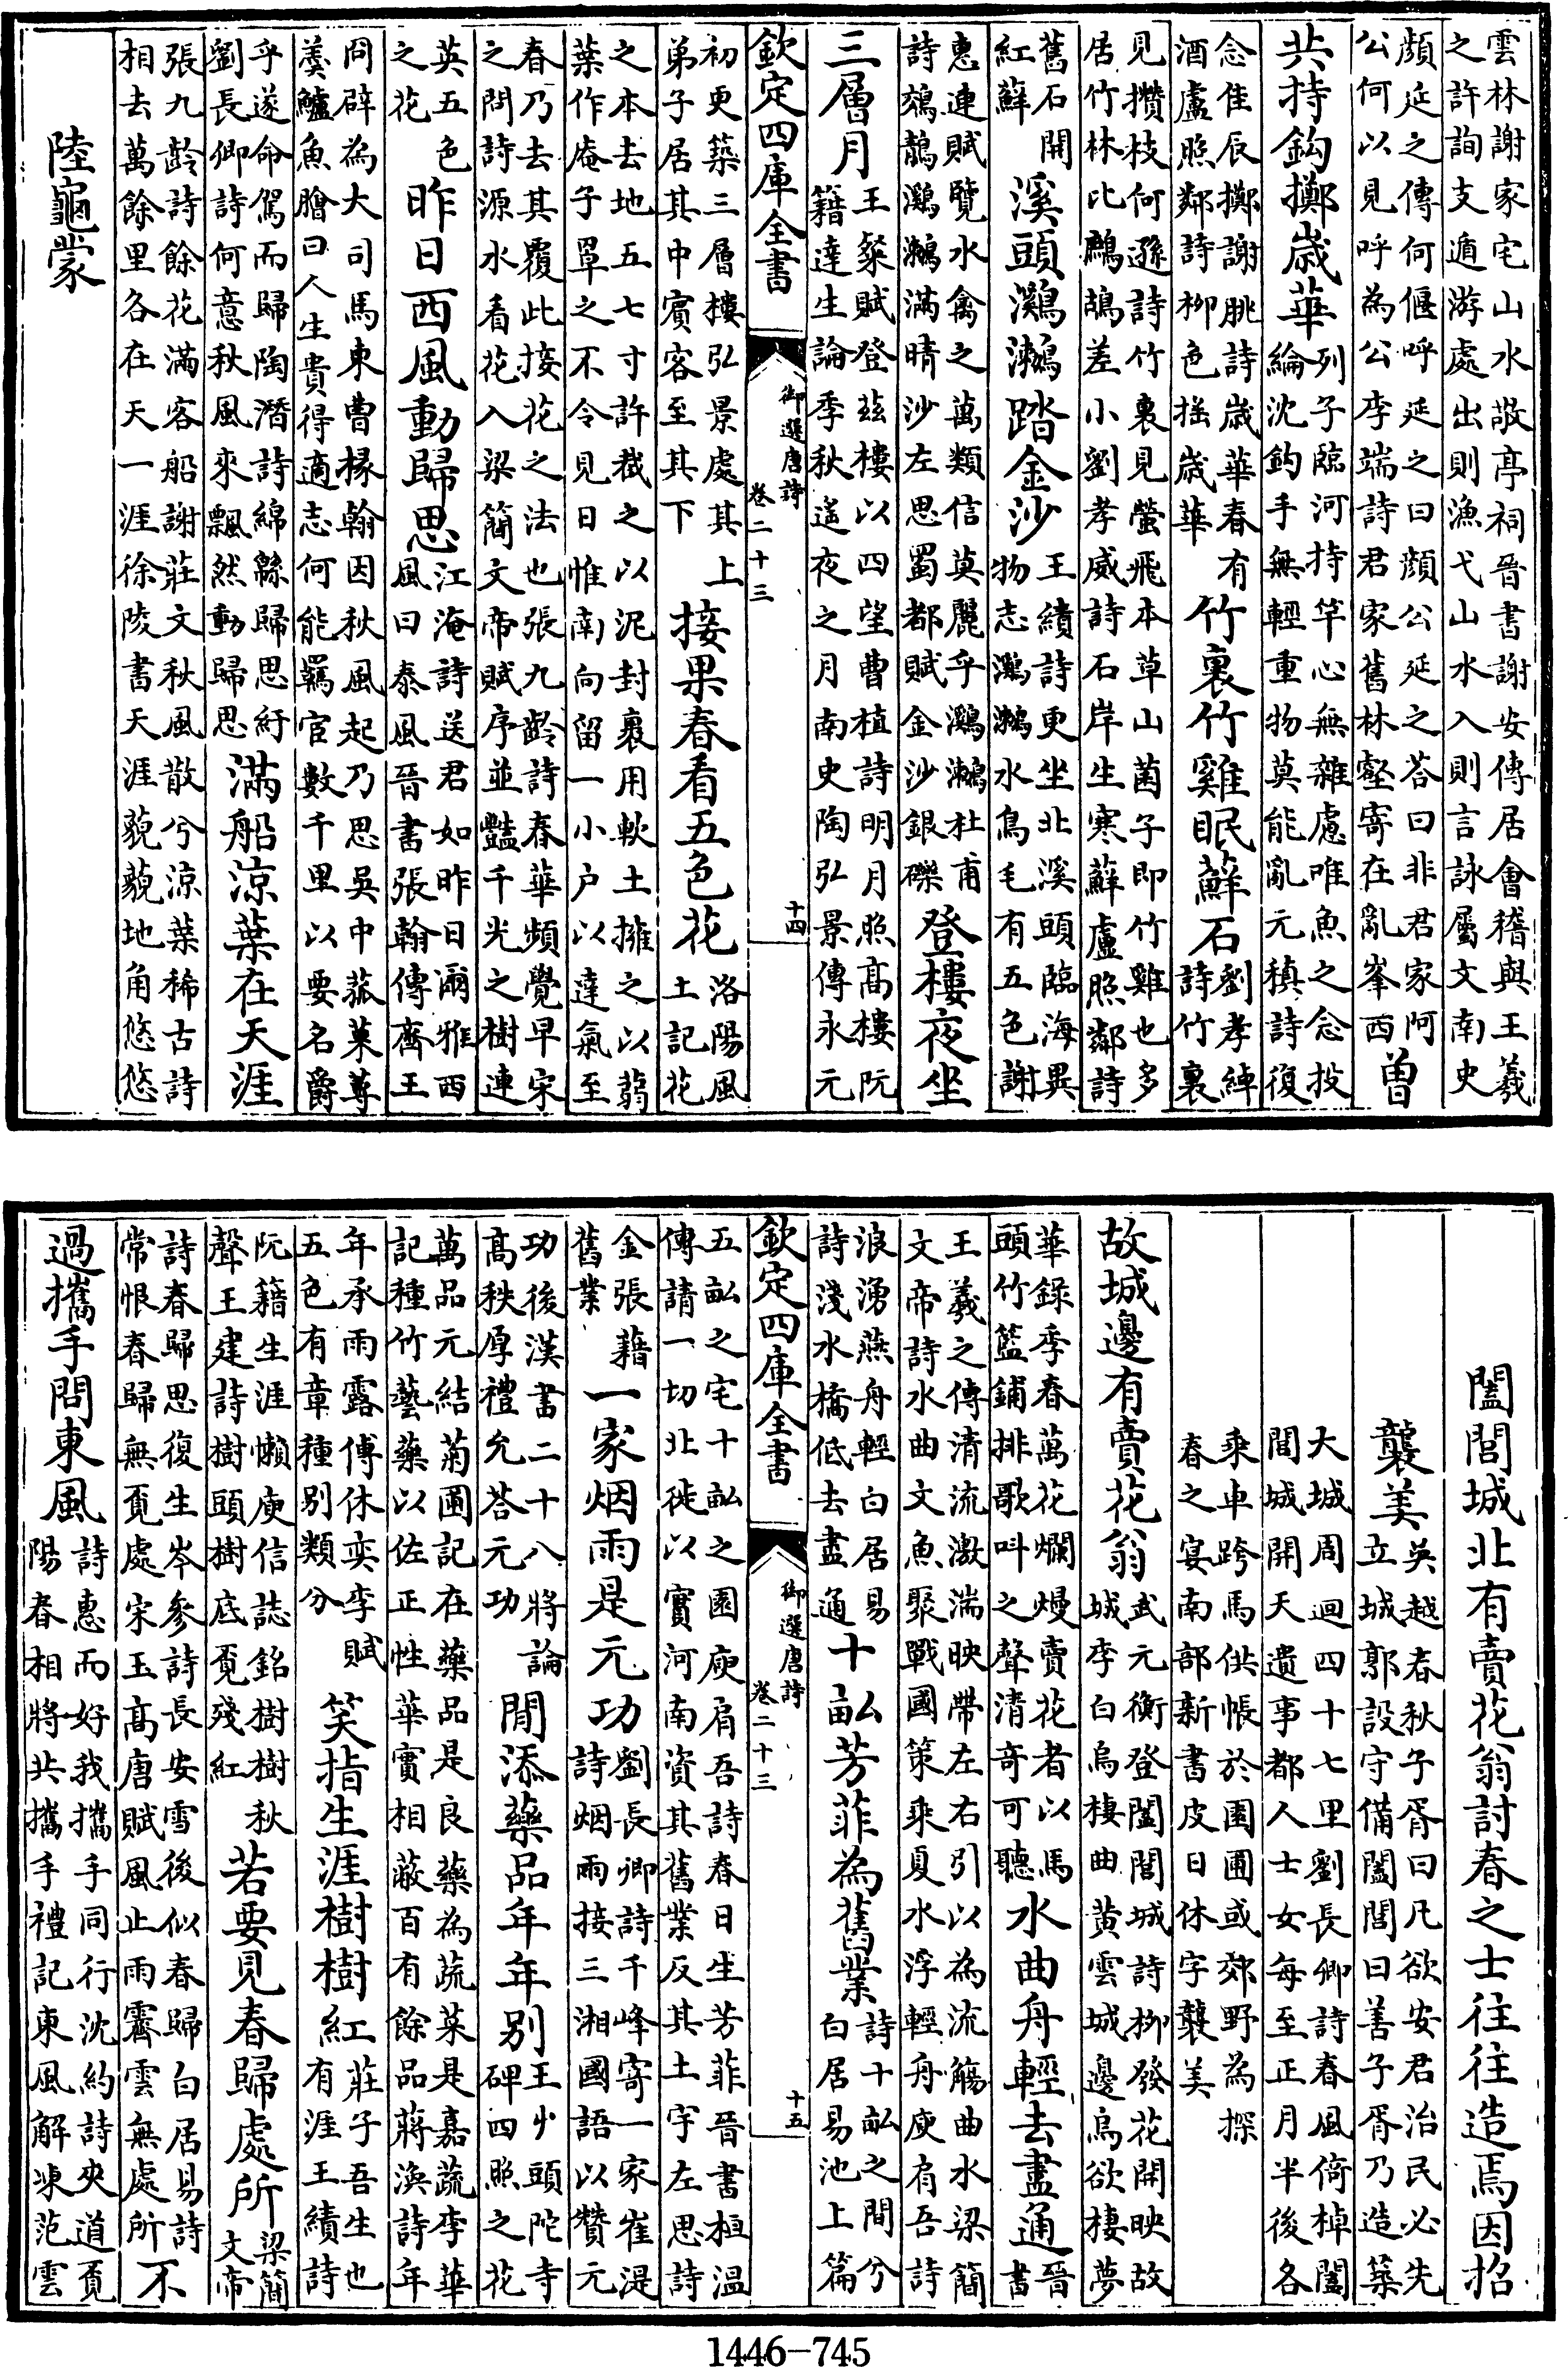 雲林謝家宅山水敬亭祠晉書謝安傳居會稽與王羲
之許詢支遁游處出則漁弋山水入則言詠屬文南史
顏延之傳何偃呼延之曰顏公延之荅曰非君家阿
公何以見呼為公李端詩君家舊林壑寄在亂峯西
曾
共持鈎擲歲華
列子臨河持竿心無雜慮唯魚之念投
綸沈鈎手無輕重物莫能亂元稹詩復
念佳辰擲謝朓詩歲華春有
酒盧照鄰詩柳色搖歲華
竹裏竹雞眠蘚石
劉孝綽
詩竹裏
見攢枝何遜詩竹裏見螢飛本草山菌子即竹雞也多
居竹林比鷓鴣差小劉孝威詩石岸生寒蘚盧照鄰詩
舊石開
紅蘚
溪頭鸂鶒踏金沙
王績詩更坐北溪頭臨海異
物志鸂鶒水鳥毛有五色謝
惠連賦覽水禽之萬類信莫麗乎鸂鶒杜甫
詩鵁鶄鸂鶒滿晴沙左思蜀都賦金沙銀礫
登樓夜坐
三層月
王粲賦登茲樓以四望曹植詩明月照高樓阮
籍達生論季秋遙夜之月南史陶弘景傳永元
欽定四庫全書
御選唐詩
卷二十三
十四
初更築三層樓弘景處其上
弟子居其中賓客至其下
接果春看五色花
洛陽風
土記花
之本去地五七寸許截之以泥封裹用軟土擁之以蒻
葉作庵子罩之不令見日惟南向留一小户以達氣至
春乃去其覆此接花之法也張九齡詩春華頻覺早宋
之問詩源水看花入梁簡文帝賦序並豔千光之樹連
英五色
之花
昨日西風動歸思
江淹詩送君如昨日爾雅西
風曰泰風晉書張翰傳齊王
冏辟為大司馬東曹掾翰因秋風起乃思吳中菰菜蓴
羮鱸魚膾曰人生貴得適志何能羈宦數千里以要名爵
乎遂命駕而歸陶潛詩綿綿歸思紆
劉長卿詩何意秋風來飄然動歸思
滿船涼葉在天涯
張九齡詩餘花滿客船謝莊文秋風散兮涼葉稀古詩
相去萬餘里各在天一涯徐陵書天涯藐藐地角悠悠
陸龜蒙
闔閭城北有賣花翁討春之士往往造焉因招
襲美
吳越春秋子胥曰凡欲安君治民必先
立城郭設守備闔閭曰善子胥乃造築
大城周迴四十七里劉長卿詩春風倚棹闔
閭城開天遺事都人士女每至正月半後各
乘車跨馬供帳於園圃或郊野為探
春之宴南部新書皮日休字襲美
故城邊有賣花翁
武元衡登闔閭城詩柳發花開映故
城李白烏棲曲黃雲城邊烏欲棲夢
華錄季春萬花爛熳賣花者以馬
頭竹籃鋪排歌叫之聲清奇可聽
水曲舟輕去盡通
晉
書
王羲之傳清流激湍映帶左右引以為流觴曲水梁簡
文帝詩水曲文魚聚戰國策乘夏水浮輕舟庾肩吾詩
浪湧燕舟輕白居易
詩淺水橋低去盡通
十畝芳菲為舊業
詩十畝之間兮
白居易池上篇
欽定四庫全書
御選唐詩
卷二十三
十五
五畝之宅十畝之園庾肩吾詩春日生芳菲晉書桓溫
傳請一切北徙以實河南資其舊業反其土宇左思詩
金張藉
舊業
一家烟雨是元功
劉長卿詩千峰寄一家崔湜
詩烟雨接三湘國語以贊元
功後漢書二十八將論
高秩厚禮允荅元功
閒添藥品年年別
王屮頭陀寺
碑四照之花
萬品元結菊圃記在藥品是良藥為蔬菜是嘉蔬李華
記種竹藝藥以佐正性華實相蔽百有餘品蔣渙詩年
年承雨露傅休奕李賦
五色有章種別類分
笑指生涯樹樹紅
莊子吾生也
有涯王績詩
阮籍生涯懶庾信誌銘樹樹秋
聲王建詩樹頭樹底覓殘紅
若要見春歸處所
梁簡
文帝
詩春歸思復生岑參詩長安雪後似春歸白居易詩
常恨春歸無覓處宋玉高唐賦風止雨霽雲無處所
不
過攜手問東風
詩惠而好我攜手同行沈約詩夾道覓
陽春相將共攜手禮記東風解凍范雲
1446-745